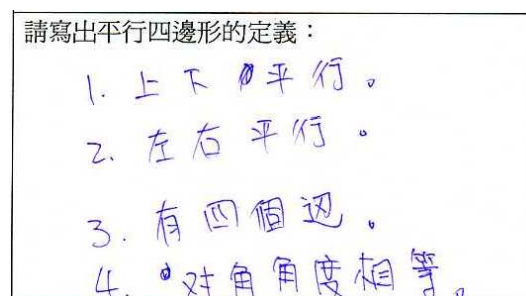 請寫出平行四邊形的定義：
1. 上下平行。
2. 左右平行。
3. 有四個边。
4. 对角角度相等。